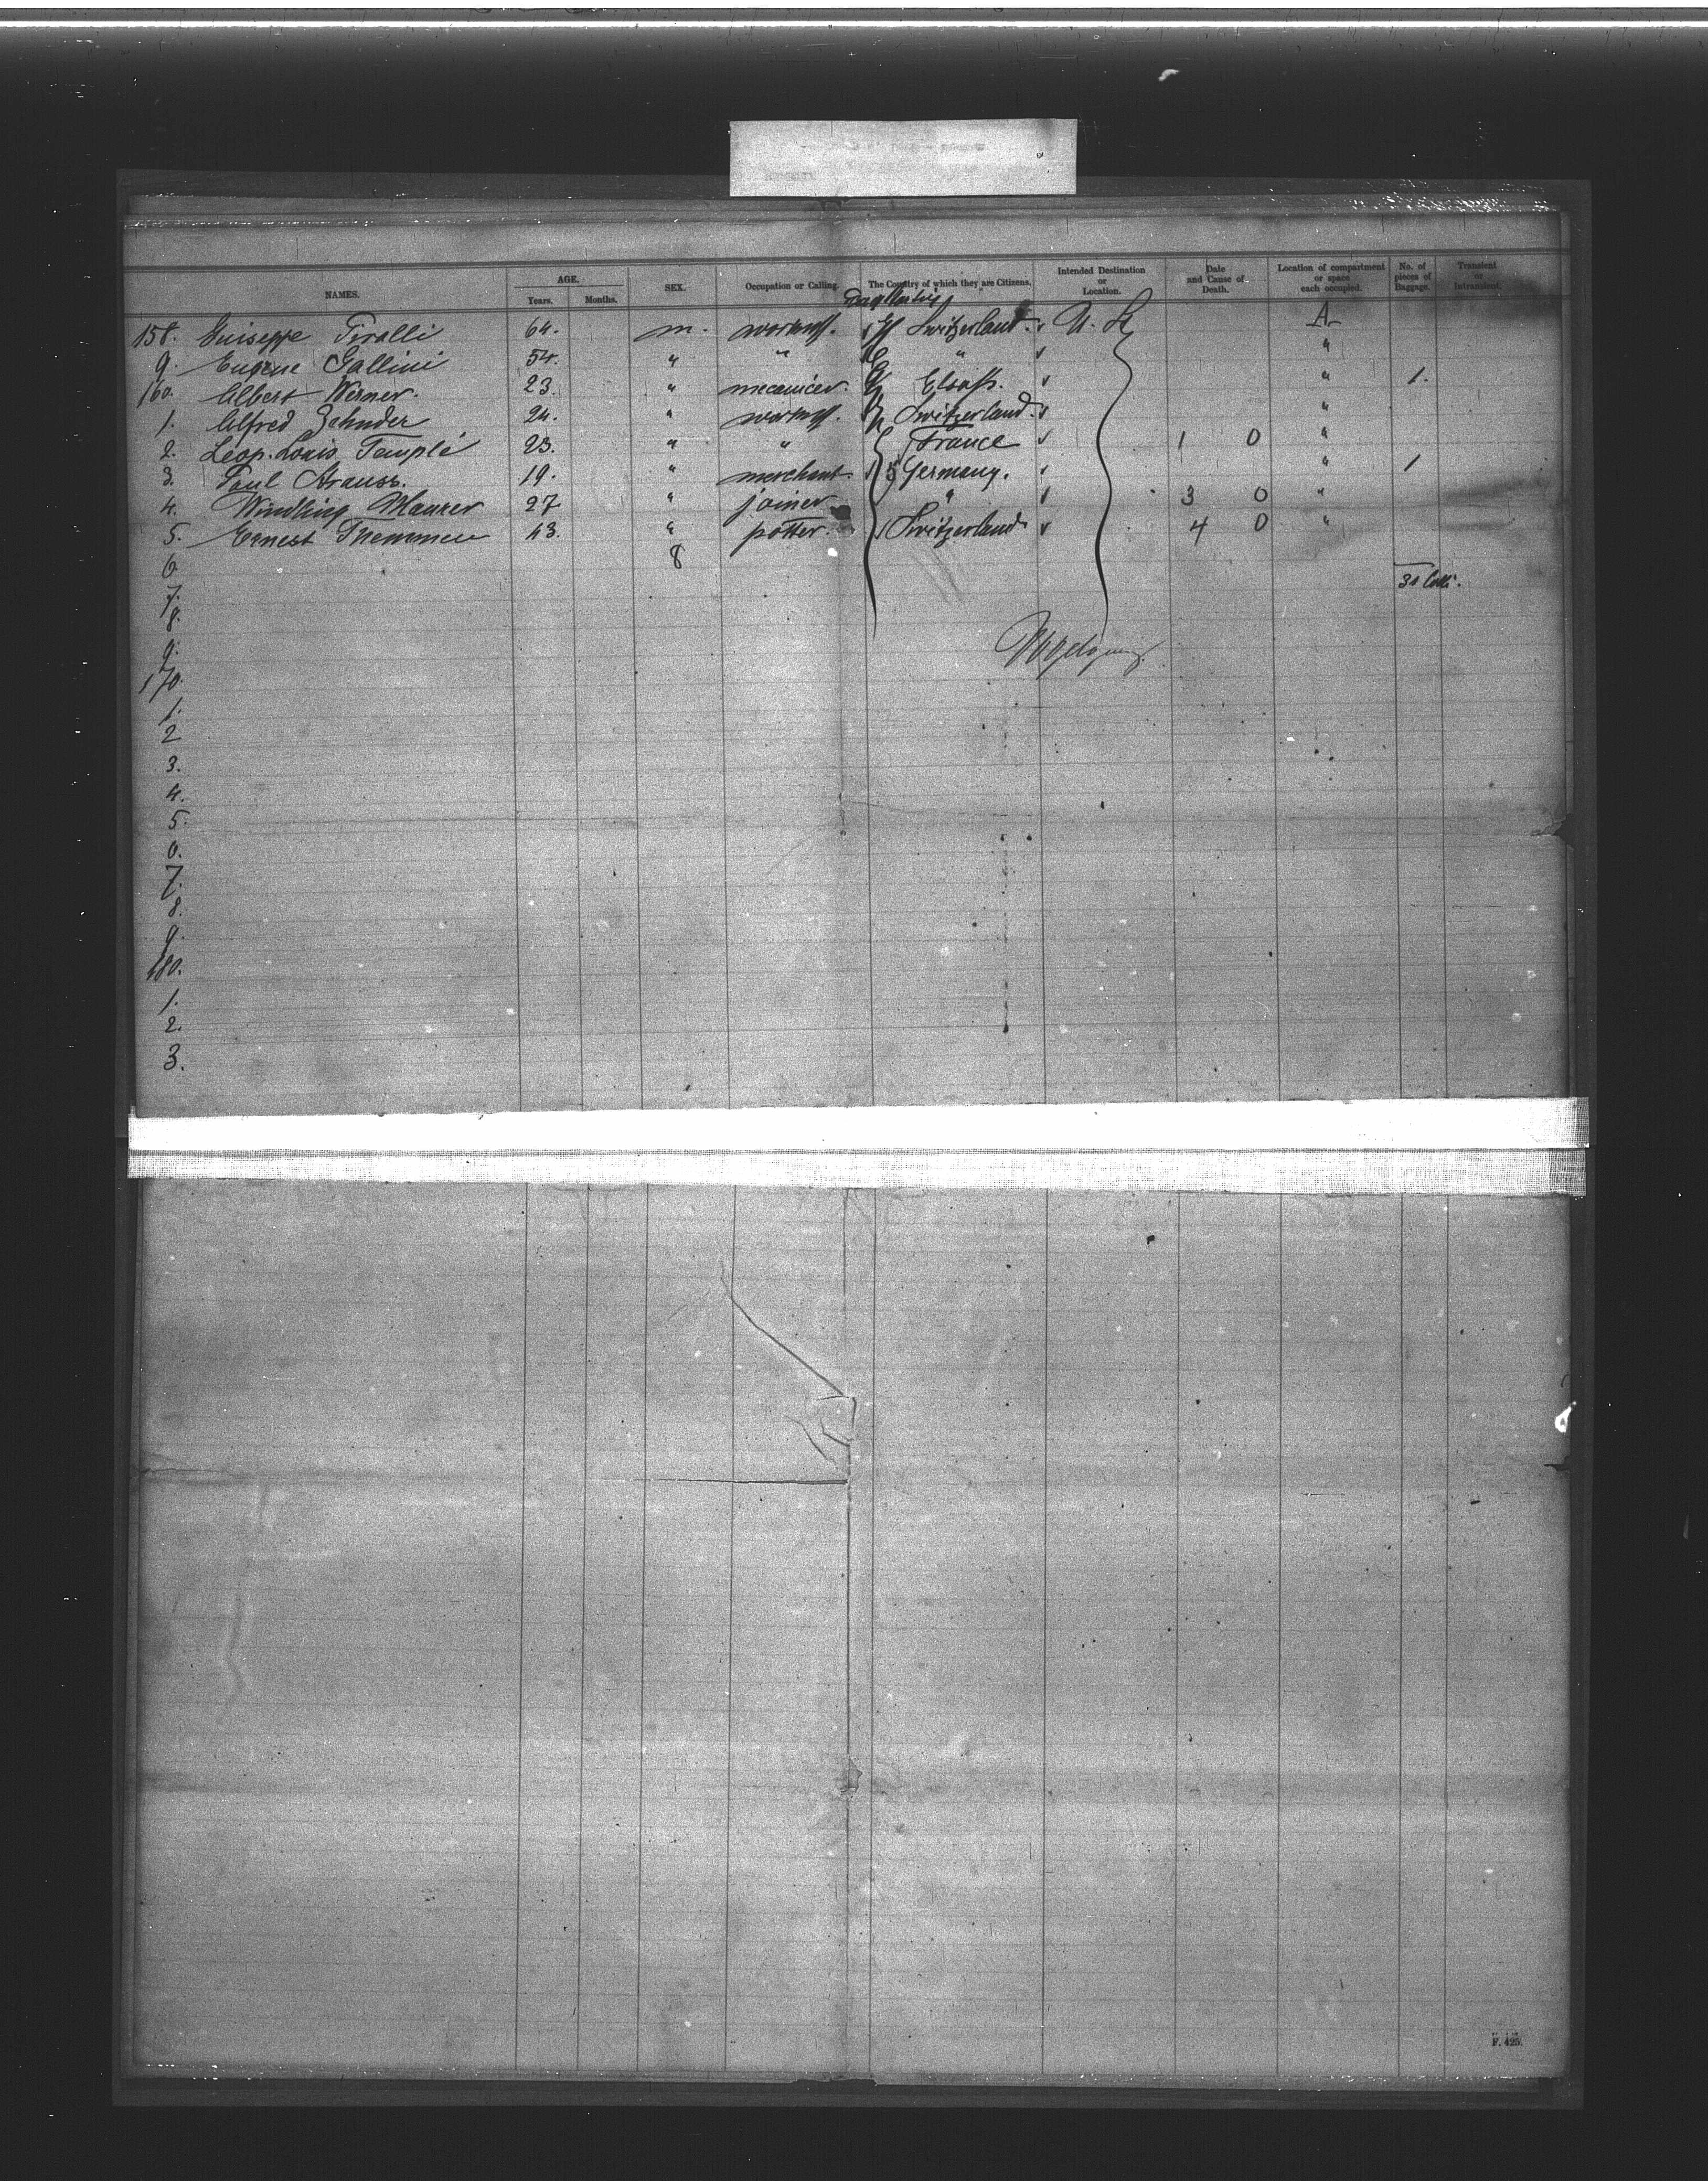 NAMES. AGE. Years. Months. SEX. Occupation or Calling. The Country of which they are Citizens. Intended Destination or Location. Date and Cause of Death. Location of compartment or space each occupied. No. of pieces of Baggage. Transient or Intransient.
158. Guiseppe 64. m. Switzerland. U. S. A
9. Eugène Gallini 54. " " " "
160. Albert Werner. 23. " mecanicer. Elsass. " 1.
1. Alfred Zehnder 24. " Switzerland. "
2. Leop. Louis Templé 23. " " France 1 0 "
3. Paul Strauss. 19. " merchant. Germany. " 1
4. Windling Maurer 27 " joiner " 3 0 "
5. Ernest 43. " potter. Switzerland 4 0 "
6. 8
31 Colli.
7.
8.
9.
170.
1.
2
3.
4.
5.
6.
7.
8.
9.
180.
1.
2.
3.
F. 425.